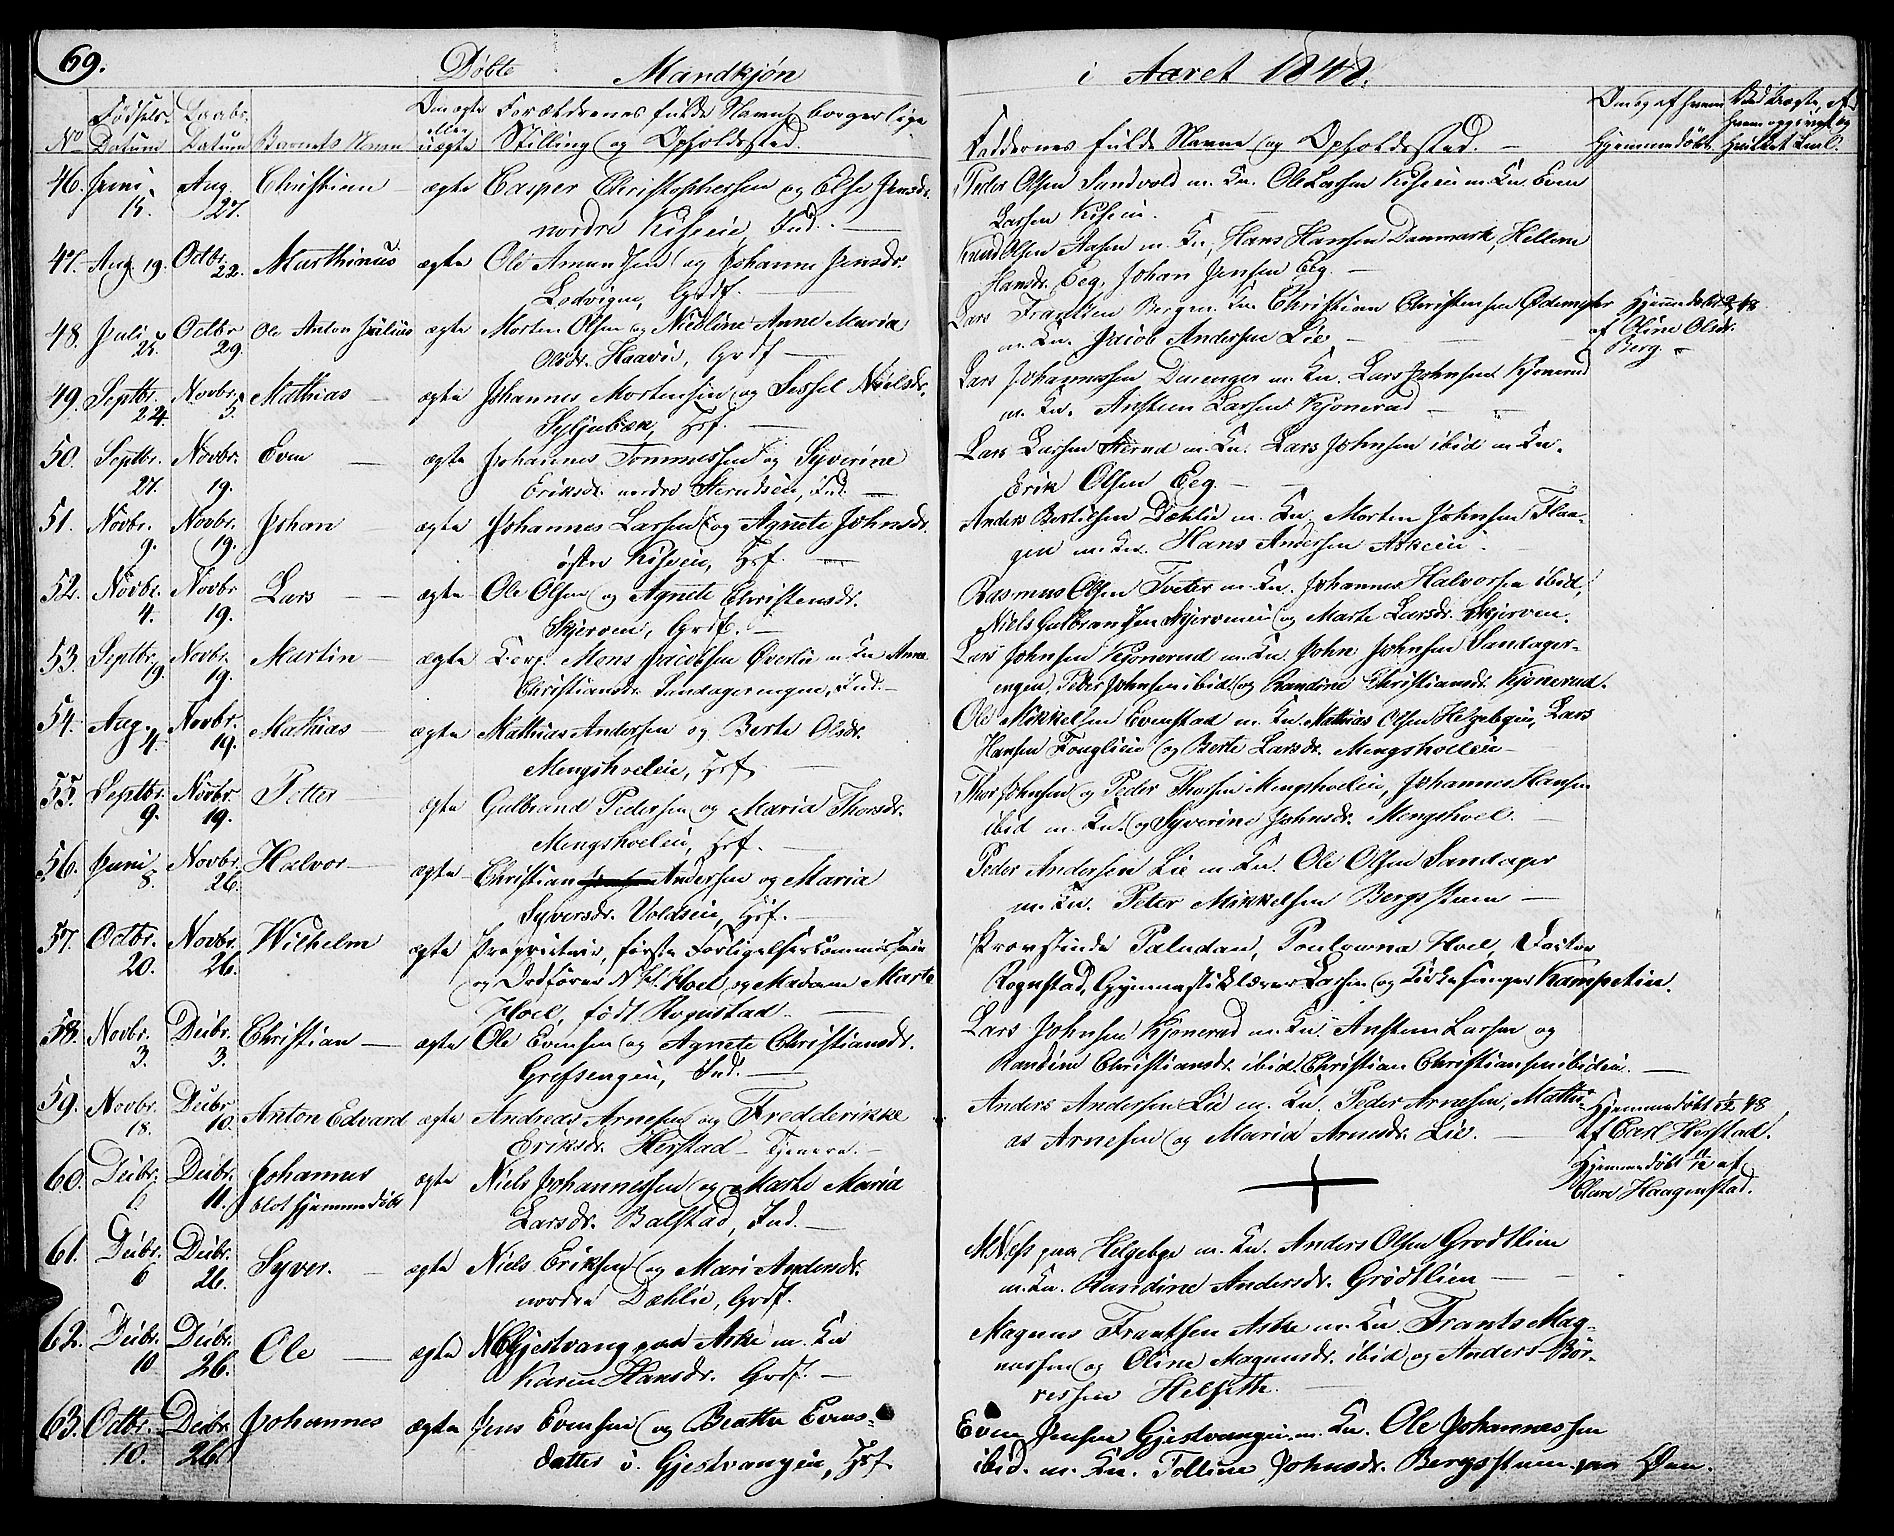 69.
Døbte Mandkjøn i Aaret 1848.
No Fødsels-Datum Daabs-Datum Barnets Navn Om ægte eller uægte Forældrenes fulde Navne, borgerlige Stilling og Opholdssted. Faddernes fulde Navne og Opholdssted. Om og af hvem Hjemmedøbt
46. Juni 15. Aug. 27. Christian ægte Casper Christophersen og Else Jensdr.
nordre Kiseeie, Ind.
Peder Olsen Sandvold m. Kn. Ole Larsen Kiseeie m. Kn. Even
Larsen Kiseeie.
47. Aug. 19. Octbr. 22. Marthinus ægte Ole Amundsen og Johanne Jensdr.
Lodvigen, Grdf.
Knud Olsen Aasen m. Kn., Hans Hansen Danmark, Hellene
Hansdr. Eeg, Johan Jensen Eeg.
48. Juli 25. Octbr. 29. Ole Anton Julius ægte Morten Olsen og Nicoline Anne Maria
Olsdr. Haavie, Grdf
Lars Frantsen Berg m. Kn. Christian Christensen Ødemark
m. Kn. Jacob Andersen Lie
af Oline Olsdr.
Berg.
49. Septbr. 24. Novbr. 5. Mathias ægte Johannes Mortensen og Sessel Nielsdr.
Syljubæk, Hsf.
Lars Johannessen Dæenger m. Kn. Lars Johnsen Kjonerud
m. Kn. Ansteen Larsen Kjonerud
50. Septbr. 27. Novbr. 19. Even ægte Johannes Tommessen og Syverine
Eriksdr. nedre Sterudseie, Ind.
Lars Larsen Sterud m. Kn. Lars Johnsen ibid m. Kn.
Erik Olsen Eeg
51. Novbr. 9. Novbr. 19. Johan ægte Johannes Larsen og Agnete Johnsdr.
østre Kiseeie, Hsf.
Anders Bertilsen Dæhlie m. Kn. Morten Johnsen Flaa-
gen m. Kn. Hans Andersen Askeeie
52. Novbr. 4. Novbr. 19. Lars ægte Ole Olsen og Agnete Christensdr.
Skjerven, Grdf.
Rasmus Olsen Tveter m. Kn. Johannes Halvorsen ibid,
Niels Gulbrandsen Skjerveneie og Marte Larsdr. Skjerven.
53. Septbr. 19. Novbr. 19. Martin ægte Mons Jacobsen Øverlie m. Kn. Anne
Christiansdr. Sandagerengen, Ind.
Lars Johnsen Kjonerud m. Kn. John Johnsen Sandager-
engen, Peder Johnsen ibid og Randine Christiansdr. Kjonerud.
54. Aug. 4. Novbr. 19. Mathias ægte Mathias Andersen og Berte Olsdr.
Mengshoeleie, Hsf.
Ole Mikkelsen Evenstad m. Kn. Mathias Olsen Helgebyeie, Lars
Hansen Fouglieie og Berte Larsdr. Mengshoeleie
55. Septbr. 9. Novbr. 19. Petter ægte Gulbrand Pedersen og Maria Thorsdr.
Mengshoeleie, Hsf.
Thor Johnsen og Peder Thorsen Mengshoeleie, Johannes Hansen
ibid m. Kn. og Syverine Johnsdr. Mengshoel.
56. Juni 8. Novbr. 26. Halvor ægte Christian Andersen og Maria
Syversdr. Voldseie, Hsf.
Peder Andersen Lie m. Kn. Ole Olsen Sandager
m. Kn. Peter Mikkelsen Bergssteen
57. Octbr. 20. Novbr. 26. Wilhelm ægte Proprietair, første Forligelsescommissair
og Ordfører N. Hoel og Madame Marte
Hoel, født Rognstad.
Provstinde Paludan, Poulowna Hoel, Doctor
Rognstad, Gymnastiklærer Larsen og Kirkesanger Kampetin.
58. Novbr. 3. Decbr. 3. Christian ægte Ole Evensen og Agnete Christiansdr.
Grefsengen, Ind.
Lars Johnsen Kjonerud m. Kn. Ansteen Larsen og
Randine Christiansdr. ibid, Christian Christiansen ibideie.
59. Novbr. 18. Decbr. 10. Anton Edvard ægte Andreas Arnesen og Fredderikke
Eriksdr. Herstad Tjenere.
Anders Andersen Lie m. Kn. Peder Arnesen, Mathi-
as Arnesen og Maria Arnesdr. Lie.
Hjemmedøbt
af Carl Herstad.
60. Decbr. 6. Decbr. 11. Johannes
blot hjemmedøbt ægte Niels Johannessen og Marte Maria
Larsdr. Balstad, Ind.
Hjemmedøbt 11/12 af
Clare Haagenstad.
61. Decbr. 6 Decbr. 26. Syver. ægte Niels Eriksen og Mari Andersdr.
nordre Dæhlie, Grdf.
M. Ness paa Helgebye m. Kn. Anders Olsen Grødtlien
m. Kn. Randine Andersdr. Grødtlien
62. Decbr. 10 Decbr. 26. Ole ægte N. Gjestvang paa Aske m. Kn
Karen Hansdr. Grdf.
Magnus Frantsen Aske m. Kn. Frants Mag-
nussen og Oline Magnusdr. ibid og Anders Bør-
resen Helseth.
63. Octbr. 10. Decbr. 26. Johannes ægte Jens Evensen og Beatte Evens-
datter ø. Gjestvangeie, Hsf.
Even Jensen Gjestvangeie m. Kn. Ole Johannessen
ibid. m. Kn. Tolline Johnsdr. Bergssteen paa Øen.